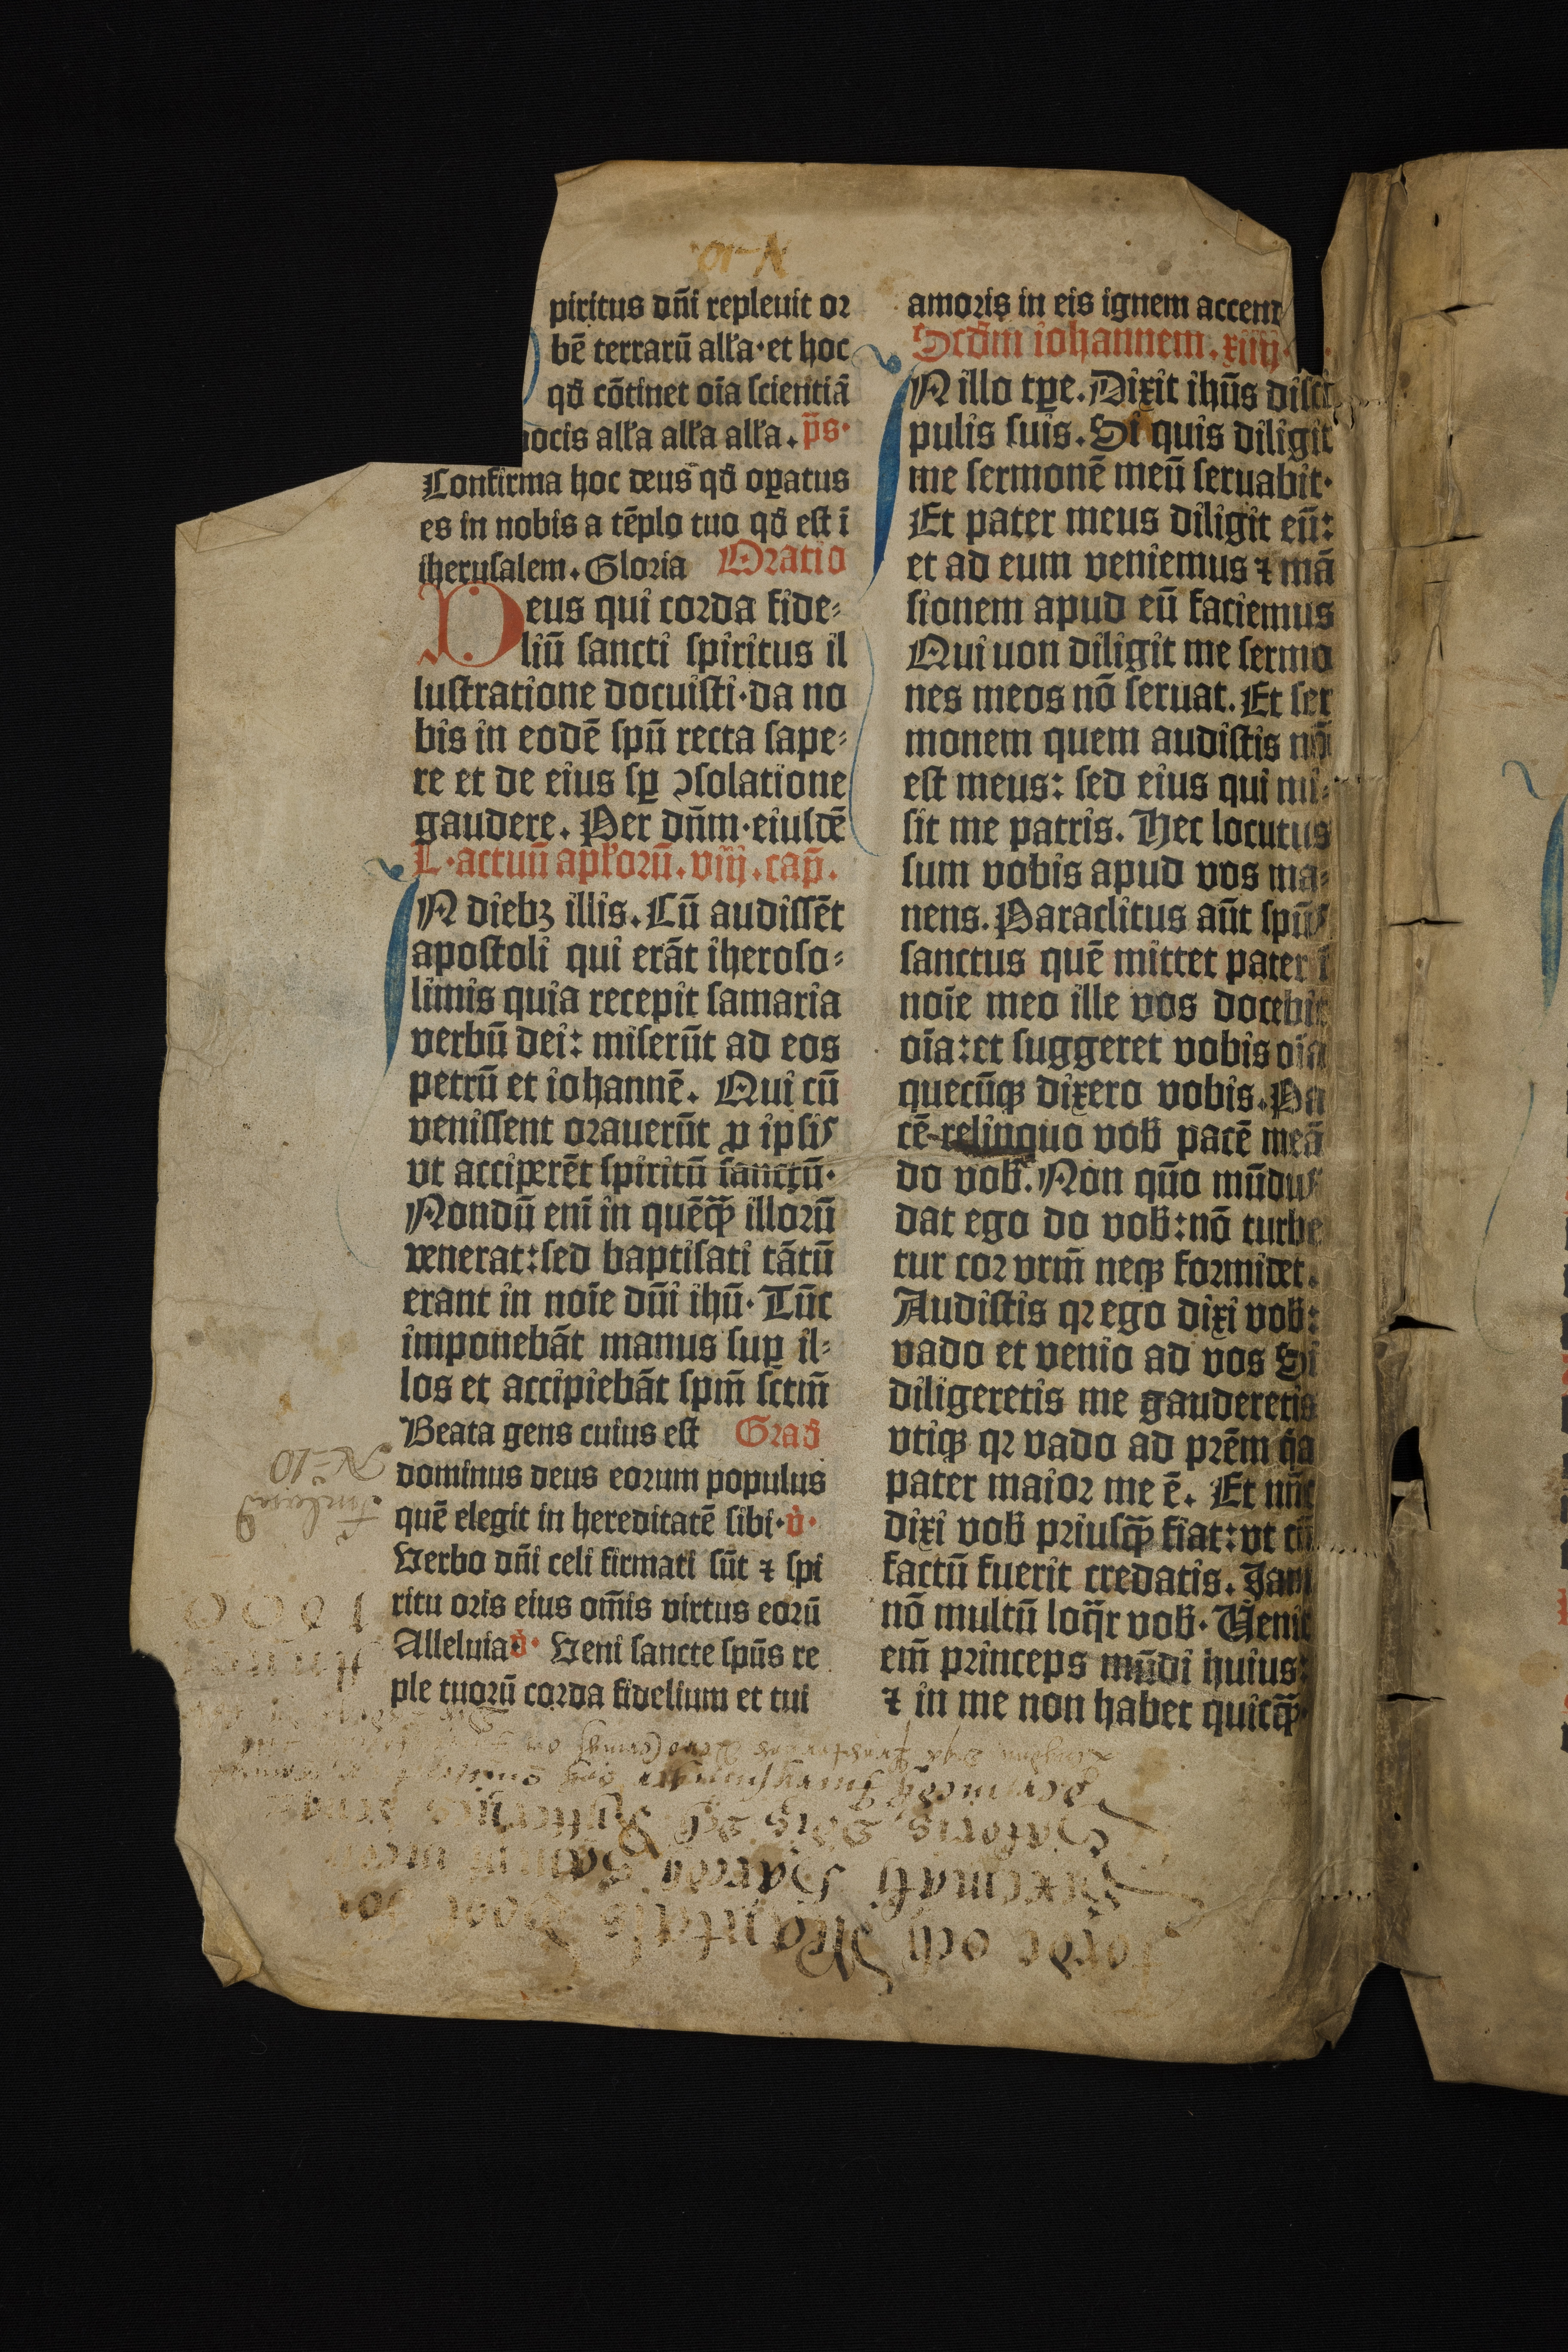 piritus dñi repleuit or
bē terrarū alľa·et hoc
qđ cōtinet oīa scientiā
uocis alľa alľa alľa. p̄s·
Confirma hoc deus qđ oꝑatus
es in nobis a tēplo tuo qđ est ī
iherusalem. Gloria Oratio
Deus qui corda fide⸗
liū sancti spiritus il
lustratione docuisti·da no
bis in eodē spū recta sape⸗
re et de eius sꝑ ꝯsolatione
gaudere. Per dñm·eiusdē
L·actuū apľorū. viij. cap̄.
IN diebꝫ illis. Cū audissēt
apostoli qui erāt iheroso⸗
limis quia recepit samaria
verbū dei: miserūt ad eos
petrū et iohannē. Qui cū
venissent orauerūt ꝓ ipsis
vt acciperēt spiritū sanctū·
Nondū enī in quēqꝫ̄ illorū
venerat:sed baptisati tātū
erant in noīe dñi ihū· Tūc
imponebāt manus suꝑ il⸗
los et accipiebāt spm̄ sctm̄
Beata gens cuius est Građ
dominus deus eorum populus
quē elegit in hereditatē sibi·v̇·
Verbo dñi celi firmati sūt ⁊ spi
ritu oris eius om̄is virtus eorū
Alleluia v̇· Veni sancte spūs re
ple tuorū corda fidelium et tui
amoris in eis ignem accend
Scđm iohannem. xiiij.
IN illo tꝑe. Dixit ihūs disci
pulis suis. Si quis diligit
me sermonē meū seruabit·
Et pater meus diligit eū:
et ad eum veniemus ⁊ mā
sionem apud eū faciemus
Qui uon diligit me sermo
nes meos nō seruat. Et ser
monem quem audistis nō
est meus: sed eius qui mi⸗
sit me patris. Hec locutus
sum vobis apud vos ma⸗
nens. Paraclitus aūt spūs
sanctus quē mittet pater ī
noīe meo ille vos docebit
oīa:et suggeret vobis oīa
quecūqꝫ dixero vobis. Pa
cē relinquo voƀ pacē meā
do voƀ. Non quō mūdus
dat ego do voƀ:nō turbe
tur cor vrm̄ neqꝫ formidet.
Audistis qꝛ ego dixi voƀ:
vado et venio ad vos Si
diligeretis me gauderetis
vtiqꝫ qꝛ vado ad prēm qa
pater maior me ē. Et nūc
dixi voƀ priusqꝫ̄ fiat:vt cū
factū fuerit credatis. Iam
nō multū loq̄r voƀ· Venit
em̄ princeps mūdi huius:
⁊ in me non habet quicqꝫ̄·
N 10